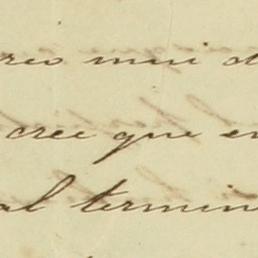 reo mui d
cree que en
al termin